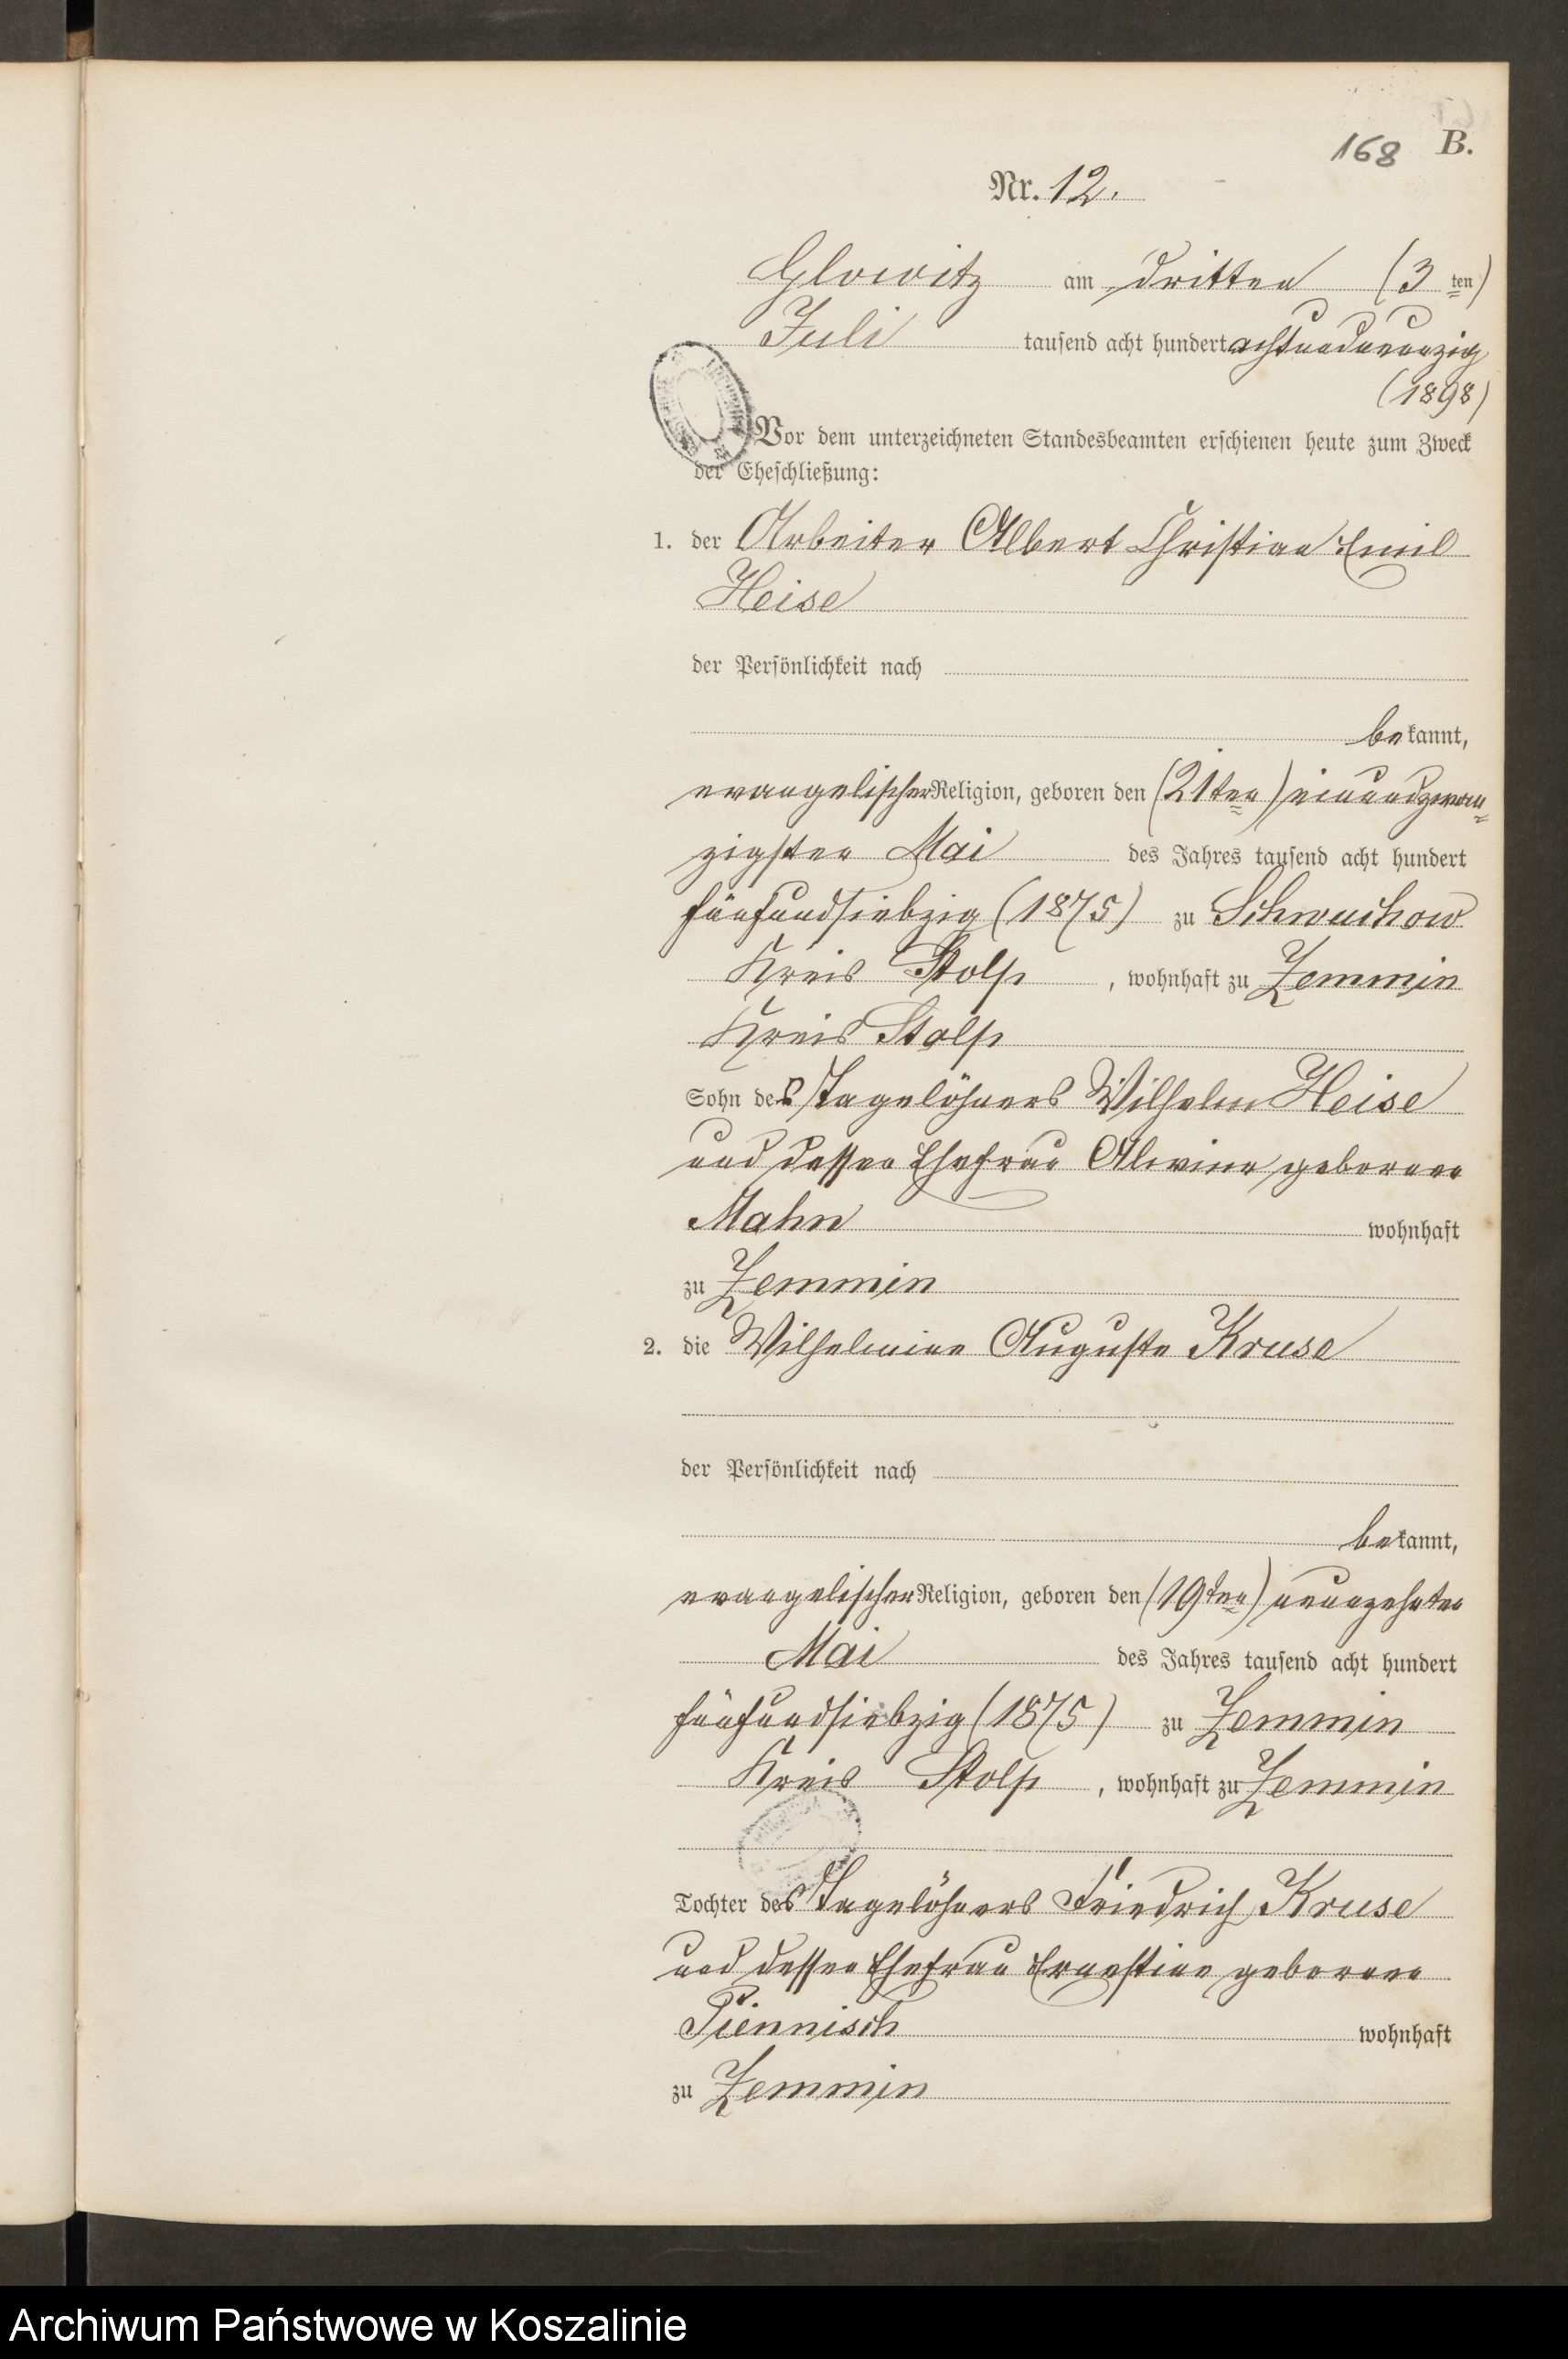 168 B.
Nr. 12.
Glowitz am dritten (3 ten)
Juli tausend acht hundert achtundneunzig
(1898)
Vor dem unterzeichneten Standesbeamten erschienen heute zum Zweck
der Eheschließung:
1. der Arbeiter Albert Christian Emil
Heise
der Persönlichkeit nach
bekannt,
evangelischer Religion, geboren den (21ten) einundzwan-
zigsten Mai des Jahres tausend acht hundert
fünfundsiebzig (1875) zu Schwuchow
Kreis Stolp, wohnhaft zu Zemmin
Kreis Stolp
Sohn des Tagelöhners Wilhelm Heise
und dessen Ehefrau Alwine geborene
Mahn wohnhaft
zu Zemmin
2. die Wilhelmine Auguste Kruse
der Persönlichkeit nach
bekannt,
evangelischer Religion, geboren den (19ten) neunzehnten
Mai des Jahres tausend acht hundert
fünfundsiebzig (1875) zu Zemmin
Kreis Stolp, wohnhaft zu Zemmin
Tochter des Tagelöhners Friedrich Kruse
und dessen Ehefrau Ernestine geborene
Piennisch wohnhaft
zu Zemmin
Archiwum Państwowe w Koszalinie